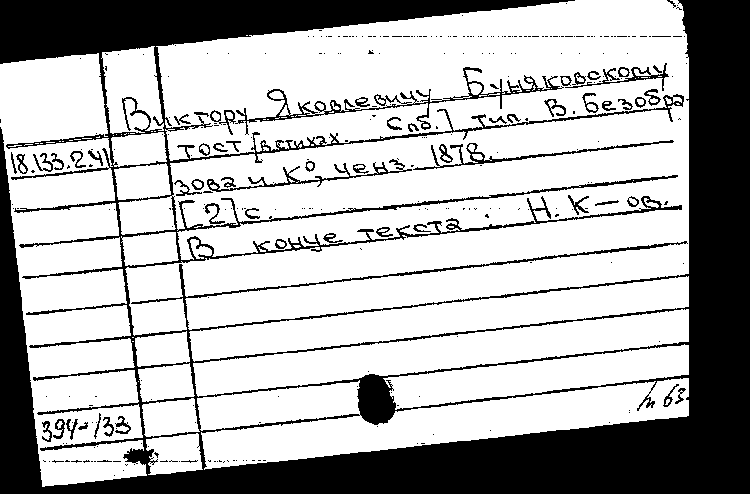 Виктору Яковлевичу Буняковскому
18.133.2.41. тост [в стихах. Спб.], тип. В. Безобра-
зова и К⁰, ценз. 1878.
[2] с.
В конце текста: Н. К—ов.
394-/33
63.